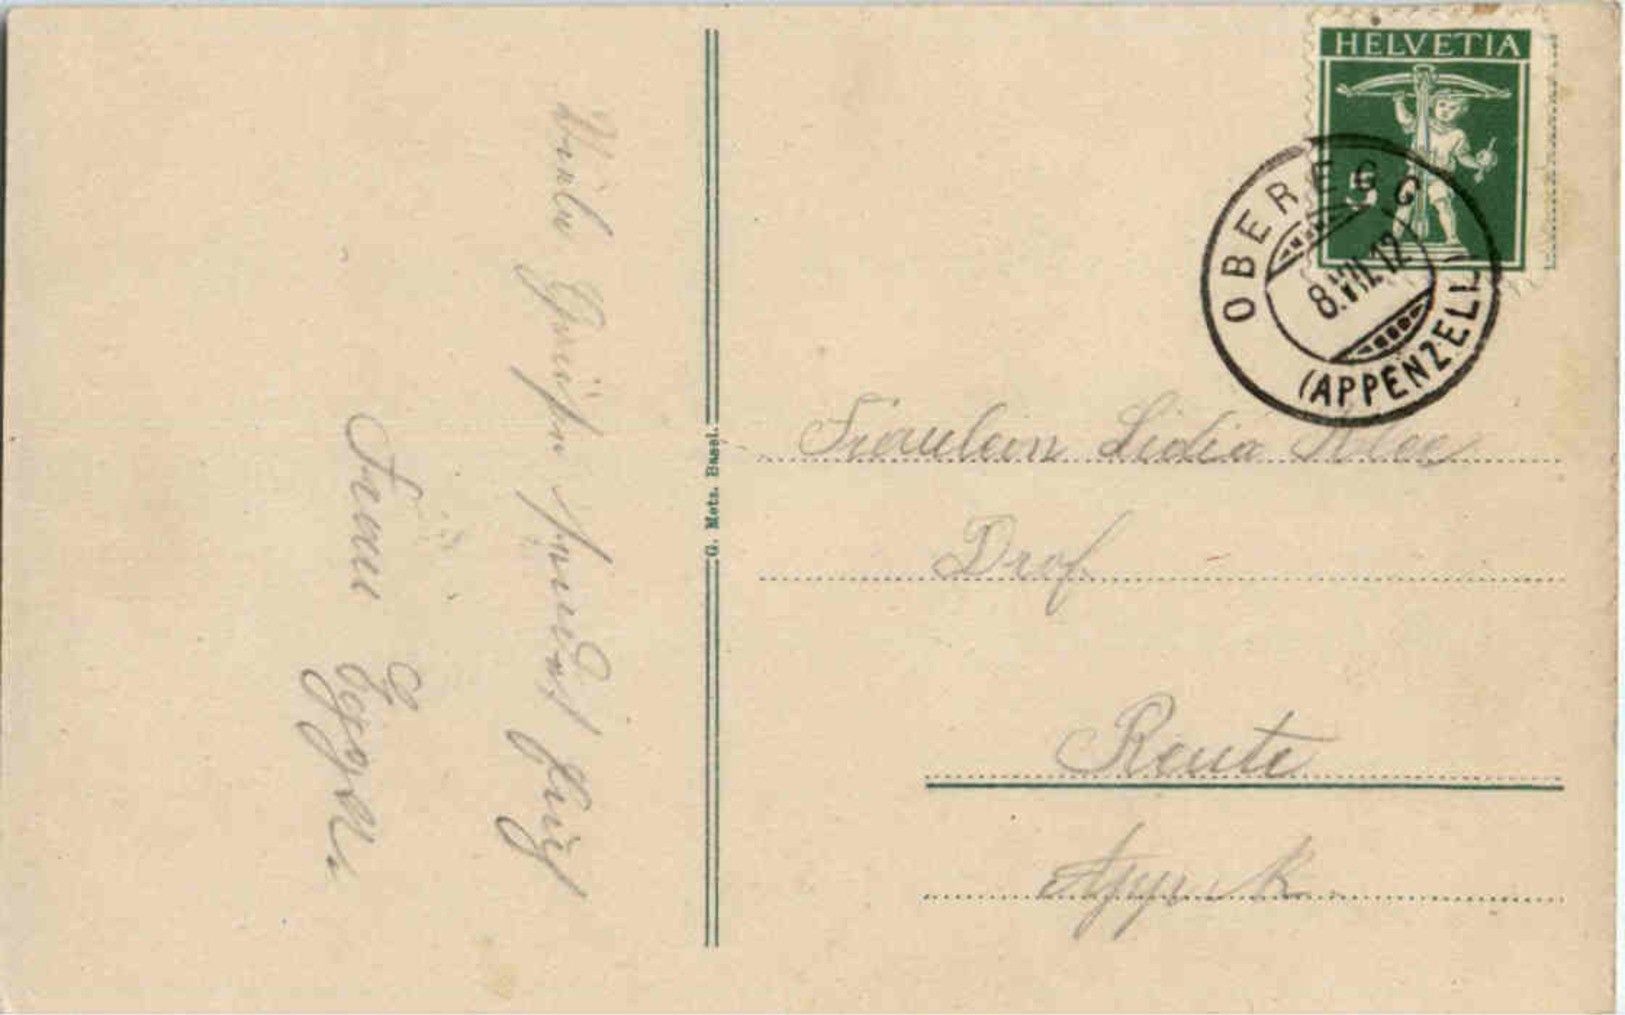 HELVETIA
5
OBEREGG
8.VII.12
(APPENZELL)
Viele Grüße sendet Euch
Frau Egger
G. Metz. Basel.
Fräulein Lidia Klee
Dorf
Reute
App. K.